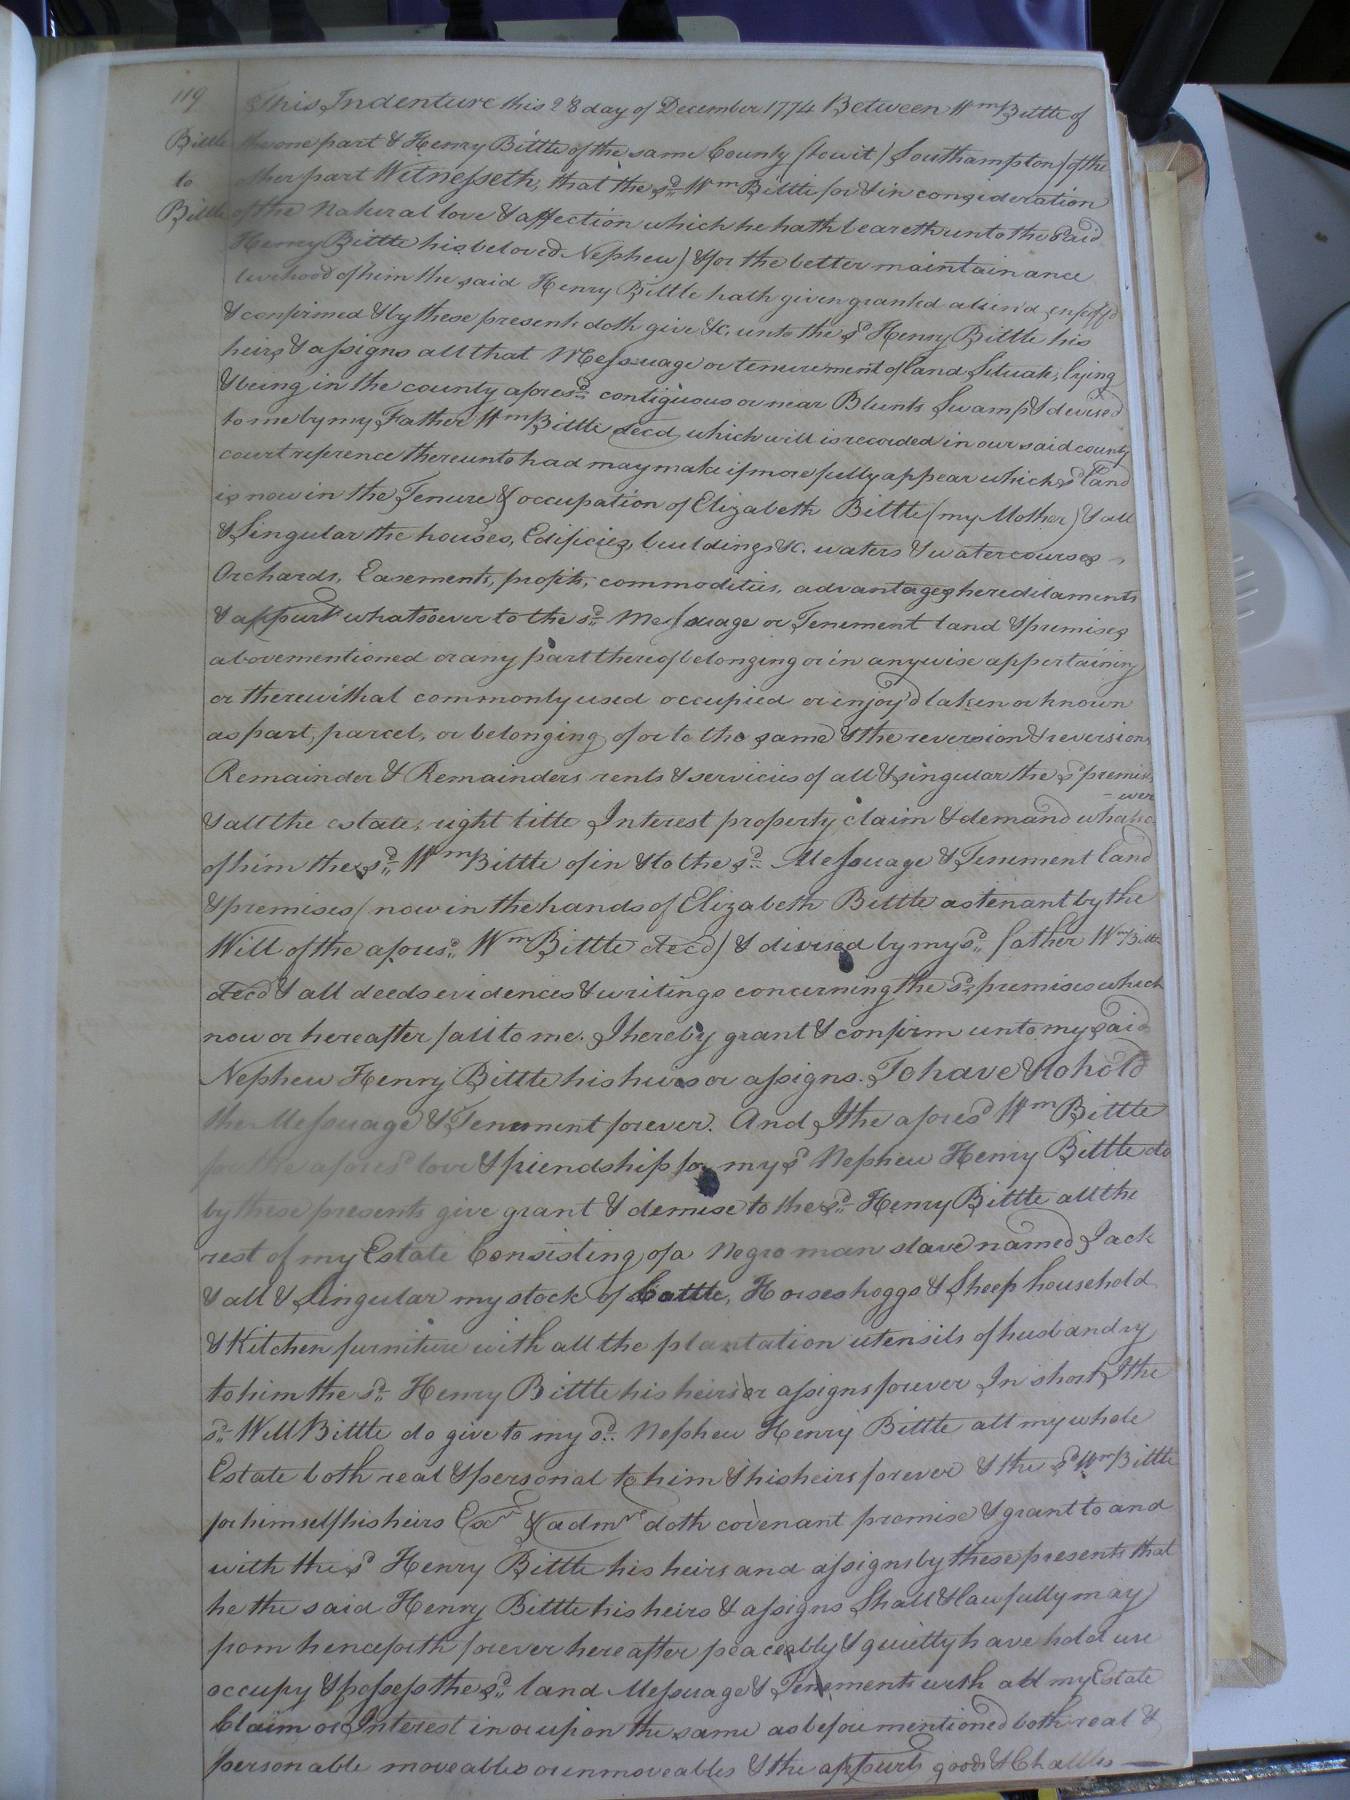 119
Bittle
to
Bittle
This Indenture this 28 day of December 1774 Between Wm Bittle of
the one part & Henry Bittle of the same County (towit) Southampton (of the
other part Witnesseth, that the sd Wm Bittle for & in consideration
of the Natural love & affection which he hath beareth unto the Said
Henry Bittle his beloved Nephew) & for the better maintainance
livehood of him the said Henry Bittle hath given granted alien'd enfeff'd
& confirmed & by these presents doth give &c, unto the sd Henry Bittle his
heirs & assigns all that Messuage or tenurement of Land Situate, lying
& being in the county aforesd contiguous or near Blunts Swamp & devised
to me by my Father Wm Bittle decd, which will is recorded in our said county
court reference thereunto had may make it more fully appear which sd Land
is now in the Tenure & occupation of Elizabeth Bittle (my Mother) & all
& Singular the houses, Edificies, buildings &c. waters & watercourses
Orchards, Easements, profits, commodities, advantages hereditaments
& appurts whatsoever to the sd Messuage or Tenement land & premises
abovementioned or any part thereof belonging or in anywise appertaining
or therewithal commonly used occupied or enjoy'd taken or known
as part, parcel, or belonging of or to the same & the reversion & reversions
Remainder & Remainders rents & servicies of all & singular the sd premises
& all the estate, right title Interest property claim & demand whatso
-ever
of him the sd Wm Bittle of in & to the sd Messuage & Tenement land
& premises (now in the hands of Elizabeth Bittle as tenant by the
Will of the aforesd Wm Bittle decd) & divised by my sd father Wm Bittle
decd & all deeds evidences & writings concerning the sd premises which
now or hereafter fall to me. I hereby grant & confirm unto my said
Nephew Henry Bittle his heirs or assigns. To have & to hold
the Messuage & Tenement forever. And I the aforesd Wm Bittle
for the aforesd love & friendship for my sd Nephew Henry Bittle do
by these presents give grant & demise to the sd Henry Bittle all the
rest of my Estate Consisting of a Negro man slave named Jack
& all & Singular my stock of Cattle, Horses hoggs & Sheep household
& Kitchen furniture with all the plantation utensils of husbandry
to him the sd Henry Bittle his heirs or assigns forever In short I the
sd Will Bittle do give to my sd Nephew Henry Bittle all my whole
Estate both real & personal to him & his heirs forever & the sd Wm Bittle
for himself his heirs Exrs & admrs doth covenant promise & grant to and
with the sd Henry Bittle his heirs and assigns by these presents that
he the said Henry Bittle his heirs & assigns Shall & lawfully may
from henceforth forever hereafter peaceably & quietly have hold use
occupy & possess the sd land Messuage & Tenements with all my Estate
Claim or Interest in or upon the same as before mentioned both real &
personable moveables or unmoveables & the appurts goods & Chattles